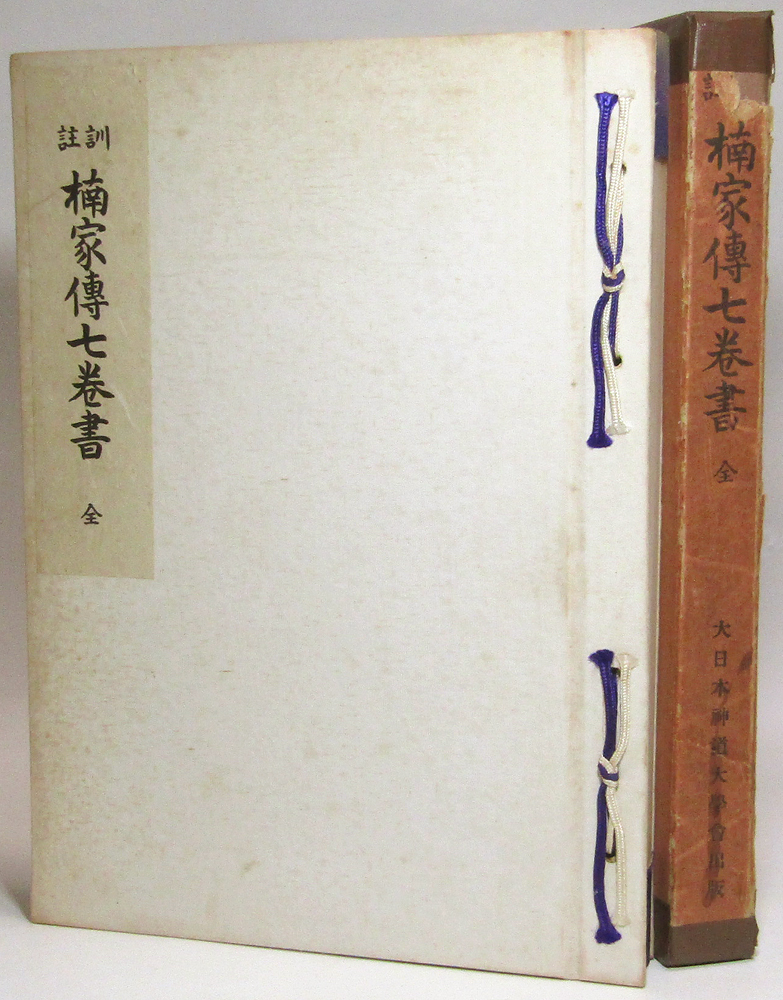 訓註
楠家傳七卷書
全
訓
楠家傳七卷書
全
大日本神道大學會出版